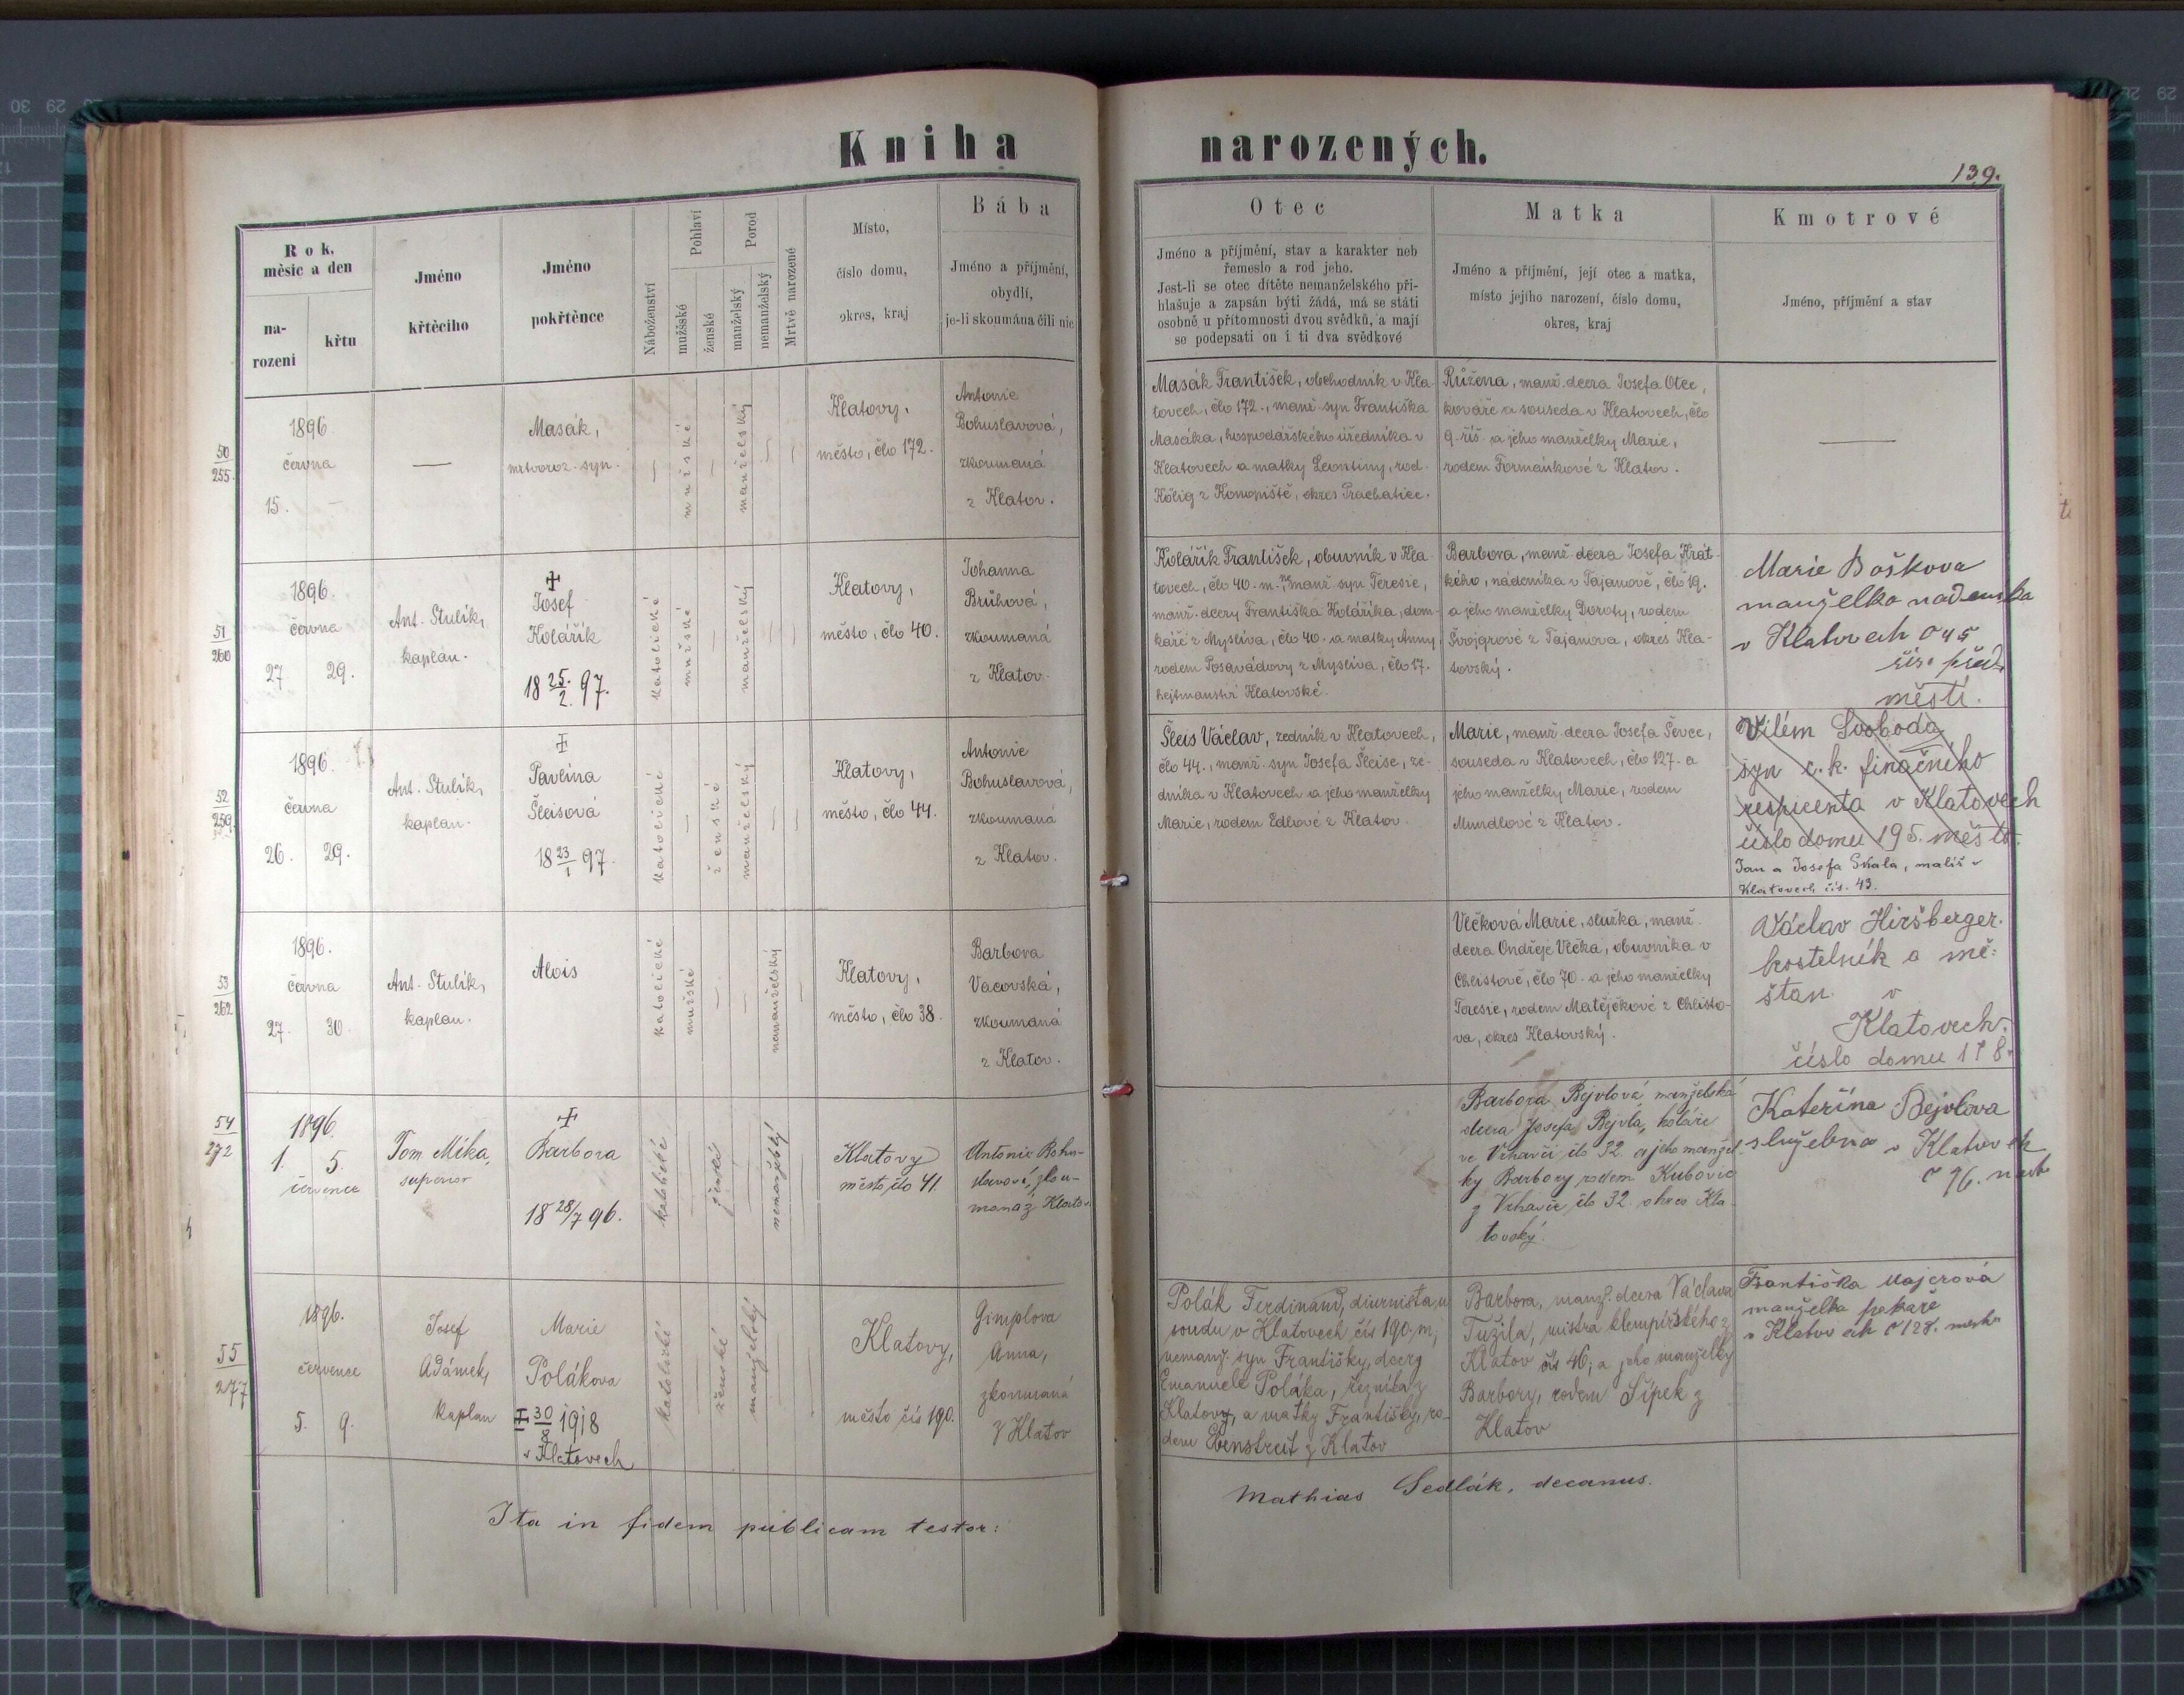 Kniha narozených.
139.
Rok, měsíc a den
na-
rození
křtu
Jméno
křtěcího
Jméno
pokřtěnce
Náboženství
Pohlaví
mužské
ženské
Porod
manželský
nemanželský
Mrtvě narozené
Místo,
číslo domu,
okres, kraj
Bába
Jméno a příjmění,
obydlí,
je-li skoumána čili nic
Otec
Jméno a příjmění, stav a karakter neb
řemeslo a rod jeho.
Jest-li se otec dítěte nemanželského při-
hlašuje a zapsán býti žádá, má se státi
osobně u přítomnosti dvou svědků, a mají
se podepsati on i ti dva svědkové
Matka
Jméno a příjmění, její otec a matka,
místo jejího narození, číslo domu,
okres, kraj
Kmotrové
Jméno, příjmění a stav
50
255.
1896.
června
15. —
—
Masák,
mrtvoroz. syn.
—
mužské
—
manželský
—
Klatovy,
město, člo 172.
Antonie
Bohuslavová,
zkoumaná
z Klatov.
Masák František, obchodník v Kla-
tovech, člo 172., manž. syn Františka
Masáka, hospodářského úředníka v
Klatovech a matky Leontiny, rod.
Kölig z Konopiště, okres Prachatice.
Růžena, manž. dcera Josefa Otec,
kováře a souseda v Klatovech, člo
9. říš. a jeho manželky Marie,
rodem Formánkové z Klatov.
—
51
260
1896.
června
27. 29.
Ant. Stulík,
kaplan.
Josef
Kolářík
18 25./2. 97.
katolické
mužské
manželský
Klatovy,
město, člo 40.
Johanna
Brůhová,
zkoumaná
z Klatov.
Kolářík František, obuvník v Kla-
tovech, člo 40. m., nemanž. syn Teresie,
manž. dcery Františka Koláříka, dom-
káře z Myslíva, člo 40. a matky Anny
rodem Posavádovy z Myslíva, člo 17.
hejtmanství Klatovské.
Barbora, manž. dcera Josefa Krát-
kého, nádeníka v Tajanově, člo 19.
a jeho manželky Doroty, rodem
Švojgrové z Tajanova, okres Kla-
tovský.
Marie Boškova
manželka nadenika
v Klatovech č 45
říš. před-
městí.
52
259.
1896.
června
26. 29.
Ant. Stulík,
kaplan.
Pavlína
Šleisová
18 23/1 97.
katolické
ženské
manželský
Klatovy,
město, člo 44.
Antonie
Bohuslavová,
zkoumaná
z Klatov.
Šleis Václav, zedník v Klatovech,
člo 44., manž. syn Josefa Šleise, ze-
dníka v Klatovech a jeho manželky
Marie, rodem Edlové z Klatov.
Marie, manž. dcera Josefa Ševce,
souseda v Klatovech, člo 127. a
jeho manželky Marie, rodem
Mundlové z Klatov.
Vilém Svoboda
syn c.k. finačního
respicenta v Klatovech
číslo domu 195. město.
Jan a Josefa Skala, malíř v
Klatovech čís. 43.
53
262
1896.
června
27. 30.
Ant. Stulík,
kaplan.
Alois
katolické
mužské
nemanželský
Klatovy,
město, člo 38.
Barbora
Vacovská,
zkoumaná
z Klatov.
Vlčková Marie, služka, manž.
dcera Ondřeje Vlčka, obuvníka v
Chlistově, člo 70. a jeho manželky
Teresie, rodem Matějčkové z Chlisto-
va, okres Klatovský.
Václav Hiršberger.
kostelník a mě:
šťan v
Klatovech.
číslo domu 178.
54
272
1896.
1. 5.
července
Tom. Mika,
superior
Barbora
18 28/7 96.
katolické
ženské
nemanželský
Klatovy
město člo 41.
Antonie Bohu-
slavová, zkou-
maná z Klatov.
Barbora Bejvlová, manželská
dcera Josefa Bejvla, koláře
ve Vrhavči člo 32. a jeho manžel-
ky Barbory rodem Kubovic
z Vrhavče člo 32. okres Kla-
tovský.
Kateřina Bejvlova
služebna v Klatovech
č 96. město
55
277
1896.
července
5. 9.
Josef
Adámek,
kaplan
Marie
Polákova
30/8 1918
v Klatovech
katolické
ženské
manželský
Klatovy,
město čís 190.
Gimplova
Anna,
zkoumaná
z Klatov
Polák Ferdinand, diurnista u
soudu v Klatovech čís 190. m,
nemanž. syn Františky, dcery
Emanuele Poláka, řezníka z
Klatovy, a matky Františky, ro-
dem Ebenstreit z Klatov
Barbora, manž. dcera Václava
Tužila, mistra klempířského z
Klatov čís 46, a jeho manželky
Barbory, rodem Šípek z
Klatov
Františka Majerová
manželka pekaře
v Klatovech č 128. město
Ita in fidem publicam testor:
Mathias Sedlák, decanus.